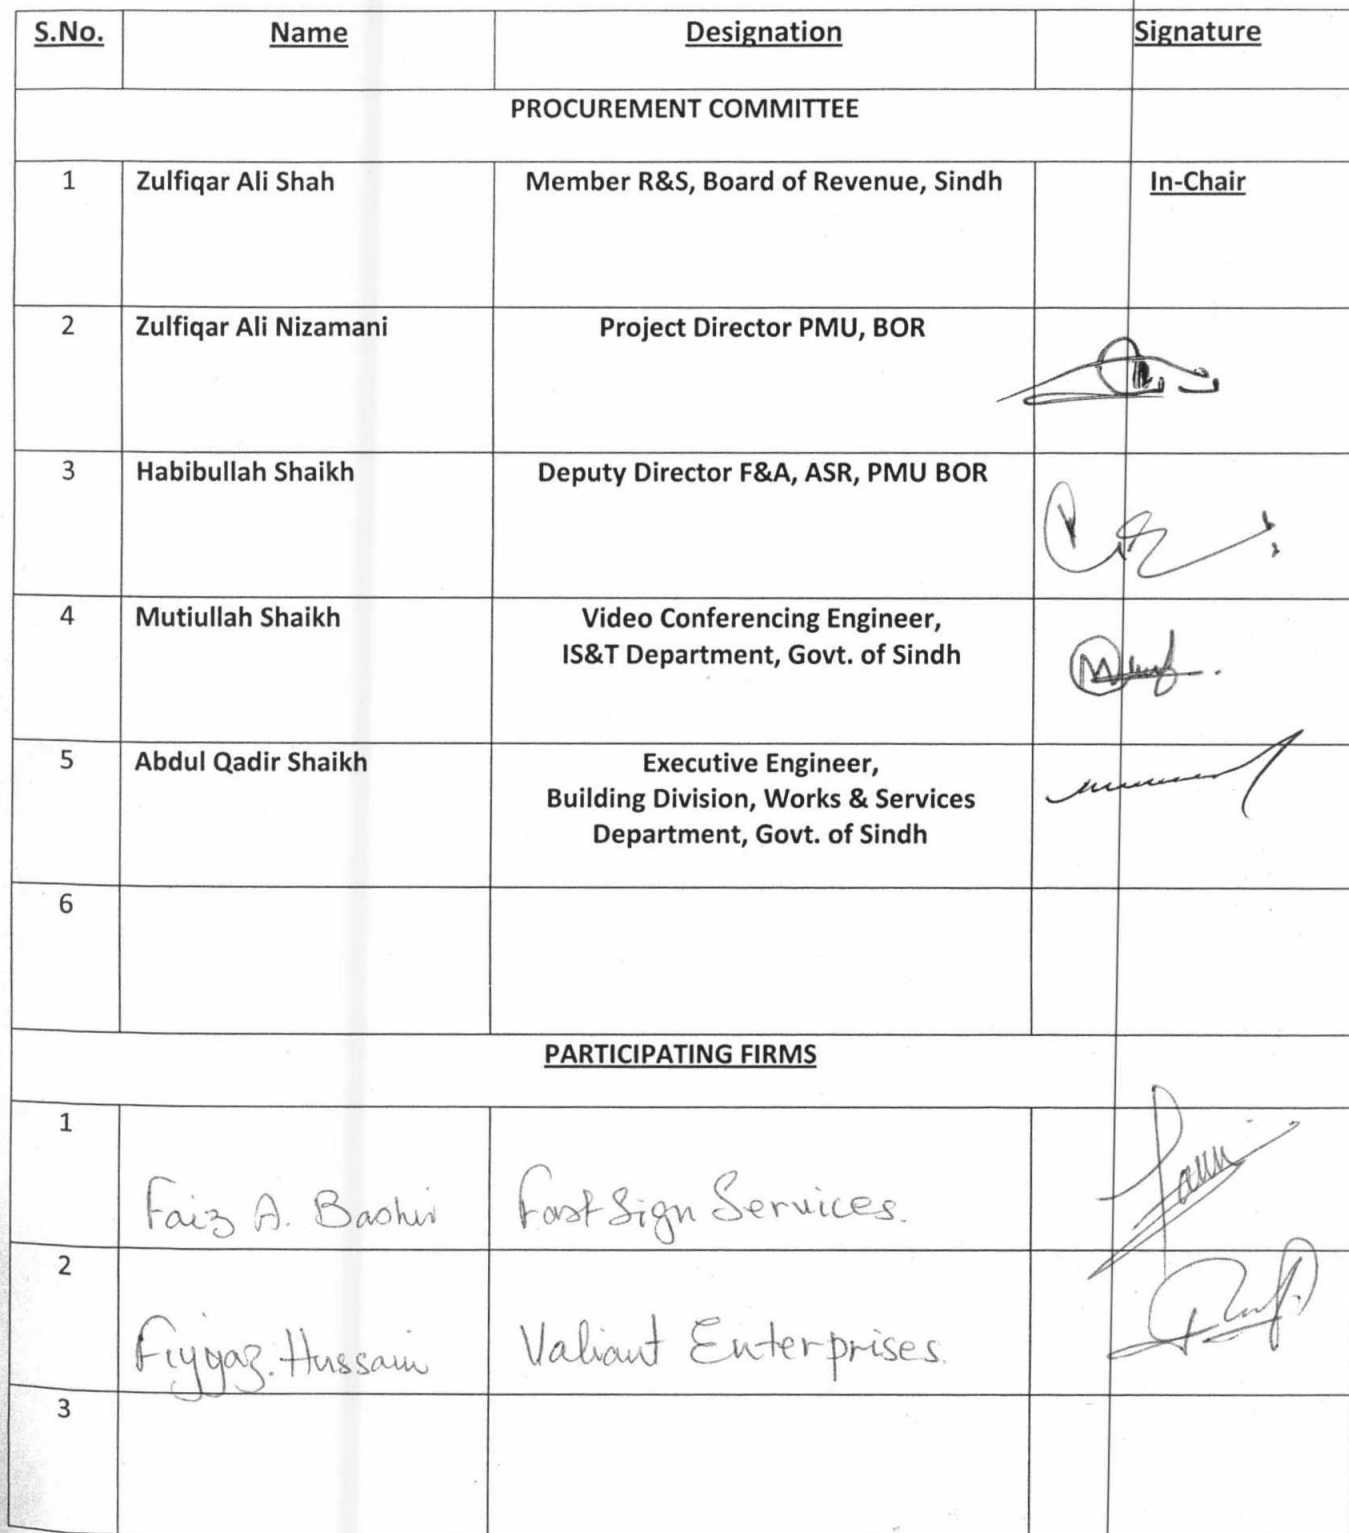 S.No. Name Designation Signature
PROCUREMENT COMMITTEE
1 Zulfiqar Ali Shah Member R&S, Board of Revenue, Sindh In-Chair
2 Zulfiqar Ali Nizamani Project Director PMU, BOR
3 Habibullah Shaikh Deputy Director F&A, ASR, PMU BOR
4 Mutiullah Shaikh Video Conferencing Engineer,
IS&T Department, Govt. of Sindh
5 Abdul Qadir Shaikh Executive Engineer,
Building Division, Works & Services
Department, Govt. of Sindh
6
PARTICIPATING FIRMS
1
Faiz A. Bashir Fast Sign Services.
2
Fiyyaz. Hussain Valiant Enterprises.
3